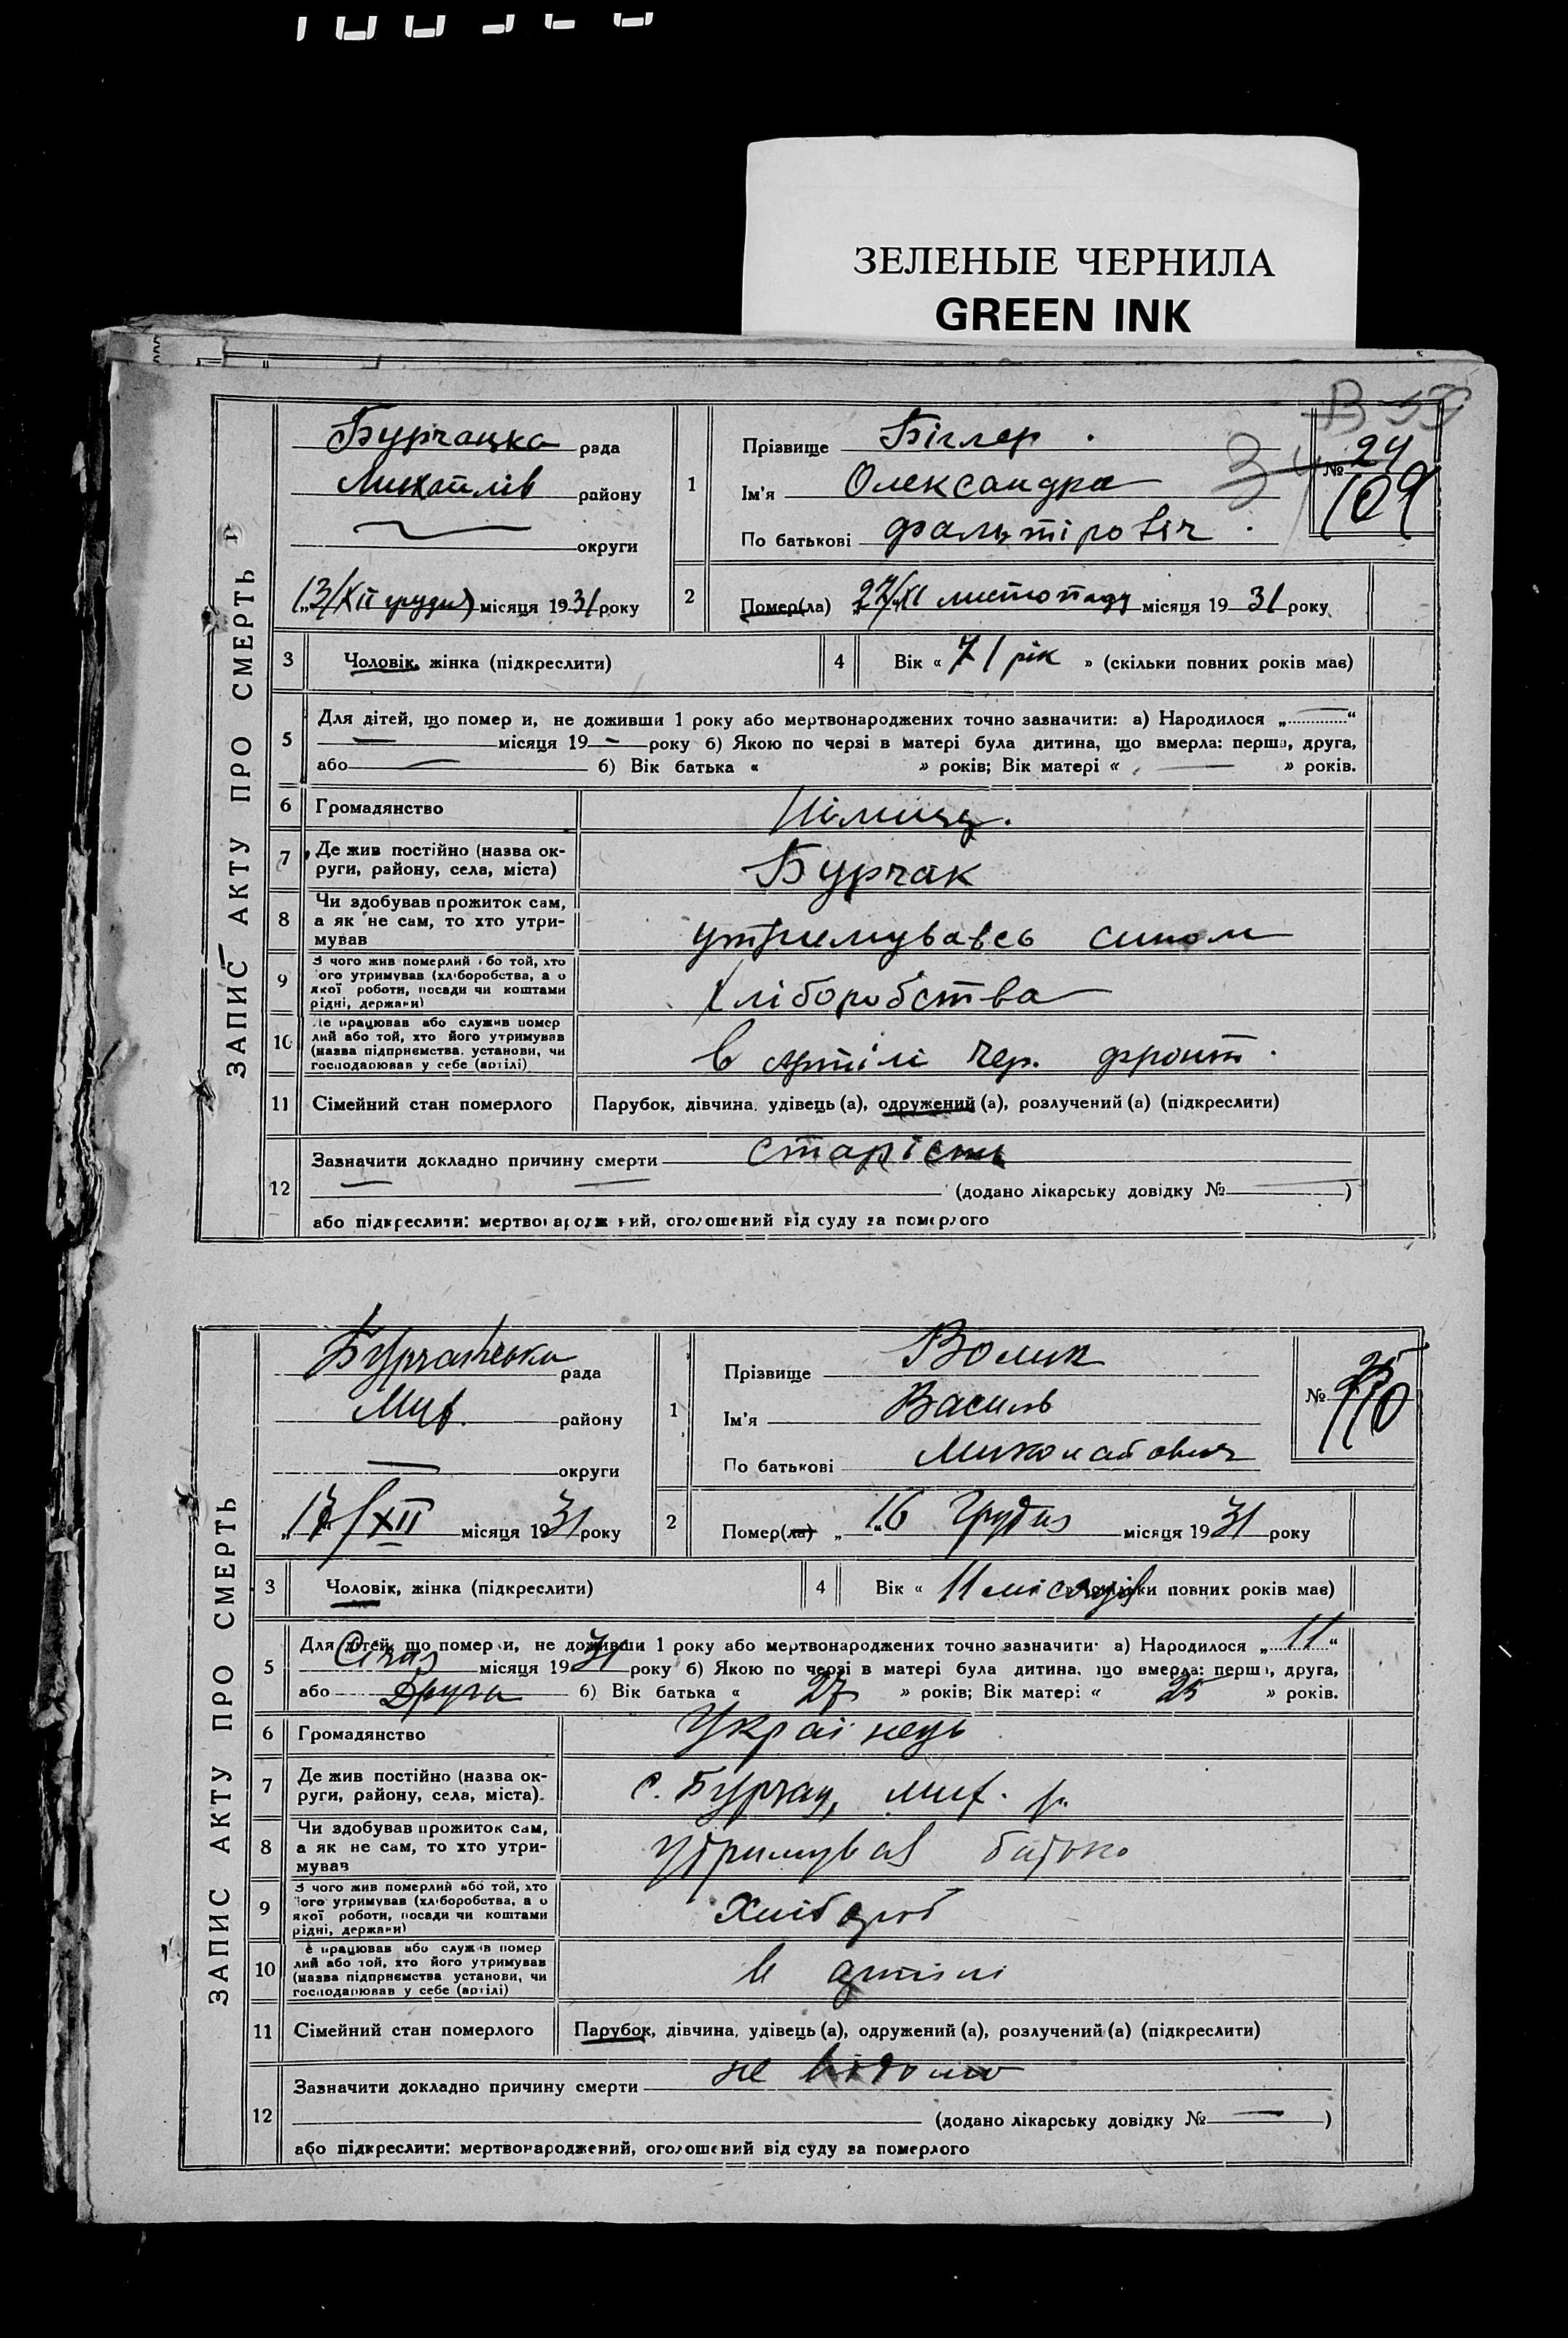 ЗЕЛЕНЫЕ ЧЕРНИЛА
GREEN INK
В 59
ЗАПИС АКТУ ПРО СМЕРТЬ
Бурчацка рада
Михайлів району
округи
13/XII грудня місяця 1931 року
1
Прізвище Біглер
Ім'я Олександра
По батькові
34
№ 24
109
2
Помер(ла) 27/XI листопаду місяця 1931 року
3 Чоловік, жінка (підкреслити)
4 Вік « 71 рік » (скільки повних років має)
5
Для дітей, що померли, не доживши 1 року або мертвонароджених точно зазначити: а) Народилося „ “
місяця 19 року б) Якою по черзі в матері була дитина, що вмерла: перша, друга,
або б) Вік батька « » років; Вік матері « » років.
6 Громадянство Німець.
7 Де жив постійно (назва ок-
руги, району, села, міста) Бурчак
8 Чи здобував прожиток сам,
а як не сам, то хто утри-
мував утримувавсь сином
9 З чого жив померлий або той, хто
його утримував (хліборобства, а о
якої роботи, посади чи коштами
рідні, держави) Хліборобства
10 Де працював або служив помер
лий або той, хто його утримував
(назва підприємства, установи, чи
господарював у себе (артілі) в артілі Чер. фронт.
11 Сімейний стан померлого Парубок, дівчина, удівець (а), одружений (а), розлучений (а) (підкреслити)
12 Зазначити докладно причину смерти старість
(додано лікарську довідку № )
або підкреслити: мертвонароджений, оголошений від суду за померлого
ЗАПИС АКТУ ПРО СМЕРТЬ
рада
Мих. району
округи
„17/XII місяця 1931 року
1
Прізвище Волик
Ім'я Василь
По батькові Миколайович
№ 25
110
2
Помер(ла) „16 Грудня місяця 1931 року
3 Чоловік, жінка (підкреслити)
4 Вік « 11 місяців » (скільки повних років має)
5
Для дітей, що померли, не доживши 1 року або мертвонароджених точно зазначити: а) Народилося „ 11 “
Січня місяця 1931 року б) Якою по черзі в матері була дитина, що вмерла: перша, друга,
або Друга б) Вік батька « 27 » років; Вік матері « 25 » років.
6 Громадянство Українець
7 Де жив постійно (назва ок-
руги, району, села, міста). с. Бурчак, мих. р.
8 Чи здобував прожиток сам,
а як не сам, то хто утри-
мував Утримував батько
9 З чого жив померлий або той, хто
його утримував (хліборобства, а о
якої роботи, посади чи коштами
рідні, держави) Хлібороб
10 Де працював або служив помер
лий або той, хто його утримував
(назва підприємства, установи, чи
господарював у себе (артілі) в артілі
11 Сімейний стан померлого Парубок, дівчина, удівець (а), одружений (а), розлучений (а) (підкреслити)
12 Зазначити докладно причину смерти не відомо
(додано лікарську довідку № )
або підкреслити: мертвонароджений, оголошений від суду за померлого